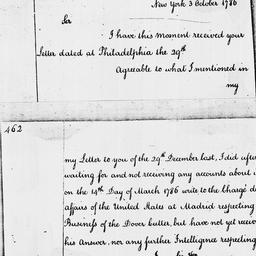 New York 3 October 1786
Sir
I have this moment received your
Letter dated at Philadelphia the 29th
Agreeable to what I mentioned in
my
462
my Letter to you of the 29th December last, I did after
waiting for and not receiving any accounts about i
on the 14th Day of March 1786 write to the Chargé d
affairs of the United States at Madrid respecting
Business of the Dover Cutter, but have not yet receiv
his Answer, nor any further Intelligence respecting